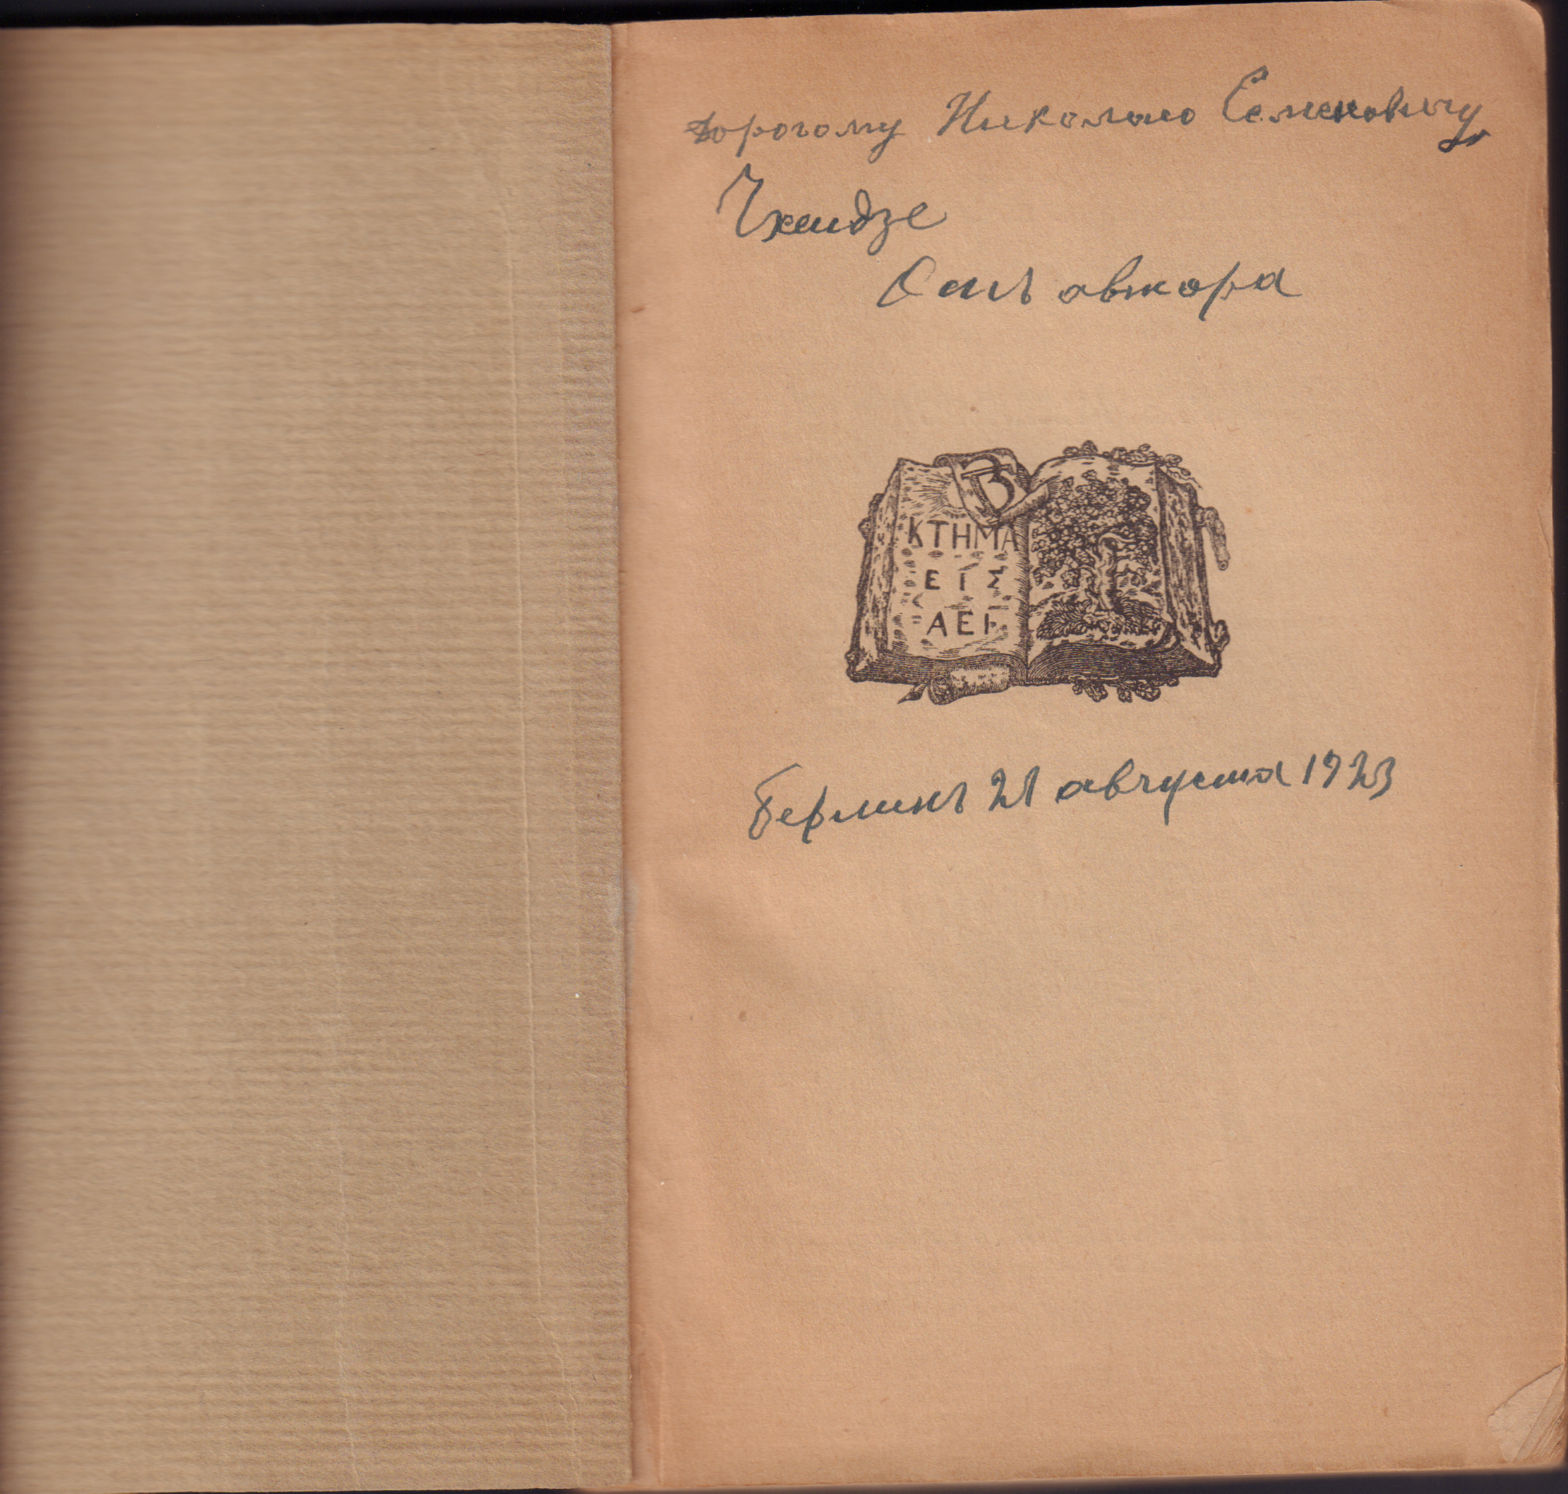 Дорогому Николаю Семеновичу
Чхеидзе
Отъ автора
З
ΚΤΗΜΑ
ΕΙΣ
ΑΕΙ
Берлинъ 21 августа 1923